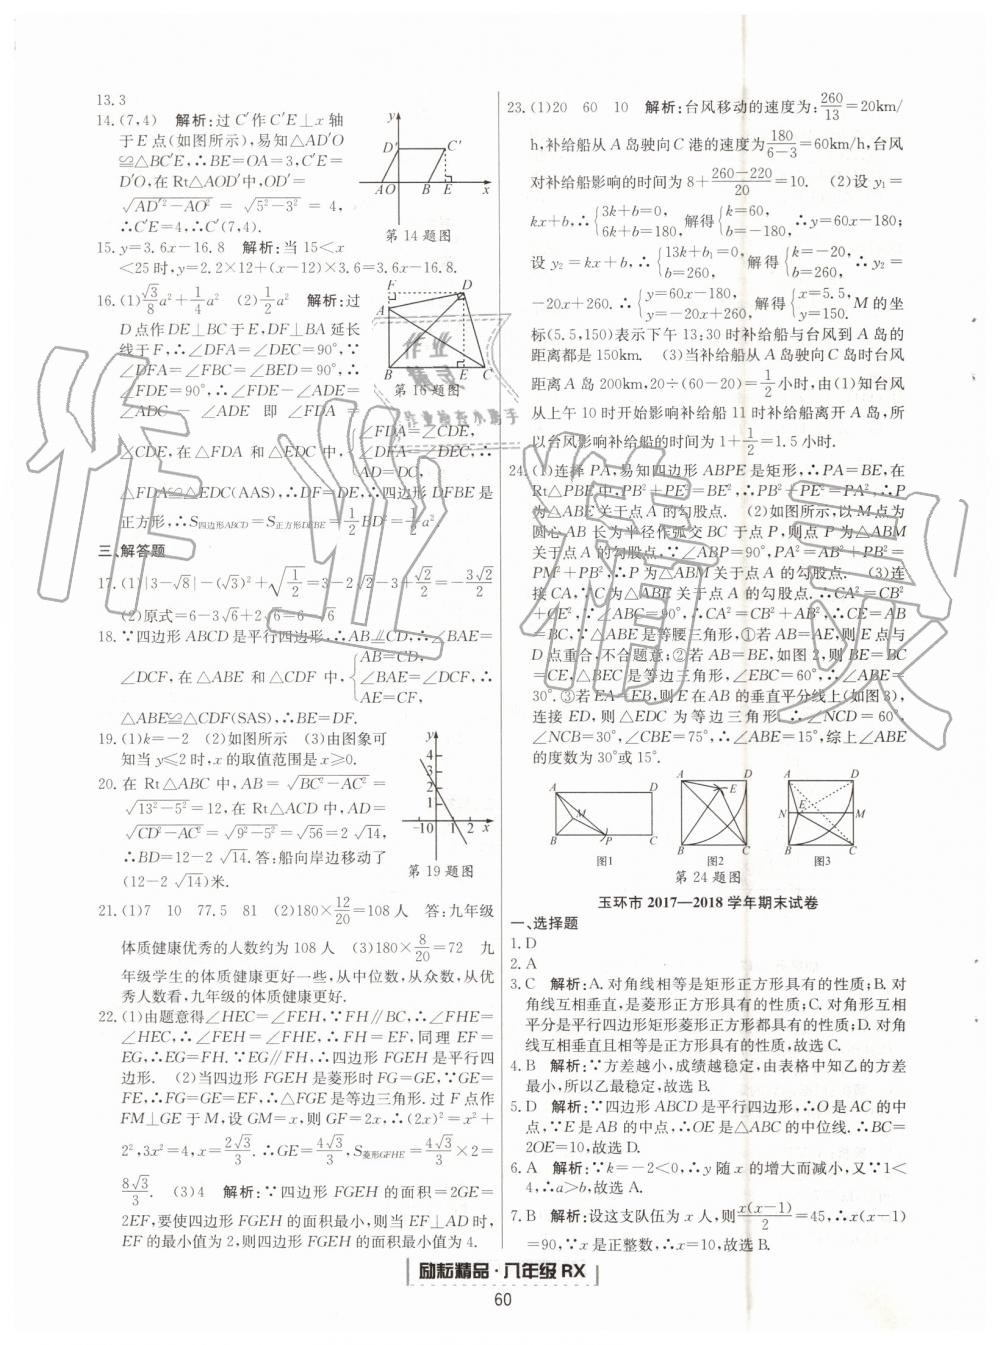 13. 3
14. (7,4)　解析:过 C′作 C′E⊥x 轴
于 E 点(如图所示),易知△AD′O
≌△BC′E,∴BE=OA=3,C′E=
D′O,在 Rt△AOD′中,OD′=
√(AD′²−AO²) = √(5²−3²) = 4,
∴C′E=4,∴C′(7,4).
y
D′
C′
A O B E x
第 14 题图
15. y=3.6x−16.8　解析:当 15<x
<25 时,y=2.2×12+(x−12)×3.6=3.6x−16.8.
16. (1)√3/8 a²+1/4 a²　(2)1/2 a²　解析:过
D 点作 DE⊥BC 于 E,DF⊥BA 延长
线于 F,∴∠DFA=∠DEC=90°,∵
∠DFA=∠FBC=∠BED=90°,∴
∠FDE=90°,∴∠FDE−∠ADE=
∠ADC−∠ADE 即 ∠FDA=
∠CDE,在△FDA 和△EDC 中,{∠FDA=∠CDE, ∠DFA=∠DEC, AD=DC, ∴
△FDA≌△EDC(AAS),∴DF=DE,∴四边形 DFBE 是
正方形,∴S四边形ABCD=S正方形DEBE=1/2 BD²=1/2 a².
F D
A
B E C
第 16 题图
三、解答题
17. (1)|3−√8|−(√3)²+√(1/2)=3−2√2−3+√2/2=−3√2/2
(2)原式=6−3√6+2√6=6−√6
18. ∵四边形 ABCD 是平行四边形,∴AB∥CD,∴∠BAE=
∠DCF,在△ABE 和△CDF 中,{AB=CD, ∠BAE=∠DCF, AE=CF, ∴
△ABE≌△CDF(SAS),∴BE=DF.
19. (1)k=−2　(2)如图所示　(3)由图象可
知当 y≤2 时,x 的取值范围是 x≥0.
20. 在 Rt△ABC 中,AB=√(BC²−AC²)=
√(13²−5²)=12,在 Rt△ACD 中,AD=
√(CD²−AC²)=√(9²−5²)=√56=2√14,
∴BD=12−2√14.答:船向岸边移动了
(12−2√14)米.
y
4
3
2
1
−1 0 1 2 x
第 19 题图
21. (1)7　10　77.5　81　(2)180×12/20=108 人　答:九年级
体质健康优秀的人数约为 108 人　(3)180×8/20=72　九
年级学生的体质健康更好一些,从中位数,从众数,从优
秀人数看,九年级的体质健康更好.
22. (1)由题意得∠HEC=∠FEH,∵FH∥BC,∴∠FHE=
∠HEC,∴∠FEH=∠FHE,∴FH=EF,同理 EF=
EG,∴EG=FH.∵EG∥FH,∴四边形 FGEH 是平行四
边形.　(2)当四边形 FGEH 是菱形时 FG=GE,∵GE=
FE,∴FG=GE=EF,∴△FGE 是等边三角形.过 F 点作
FM⊥GE 于 M,设 GM=x,则 GF=2x,∴(2x)²=x²+
2²,3x²=4,x=2√3/3.∴GE=4√3/3,S菱形GFHE=4√3/3×2=
8√3/3.　(3)4　解析:∵四边形 FGEH 的面积=2GE=
2EF,要使四边形 FGEH 的面积最小,则当 EF⊥AD 时,
EF 的最小值为 2,则四边形 FGEH 的面积最小值为 4.
23. (1)20　60　10　解析:台风移动的速度为:260/13=20km/
h,补给船从 A 岛驶向 C 港的速度为180/(6−3)=60km/h,台风
对补给船影响的时间为 8+(260−220)/20=10.　(2)设 y₁=
kx+b,∴{3k+b=0, 6k+b=180, 解得{k=60, b=−180, ∴y=60x−180;
设 y₂=kx+b,∴{13k+b₁=0, b=260, 解得{k=−20, b=260, ∴y₂=
−20x+260.∴{y=60x−180, y=−20x+260, 解得{x=5.5, y=150. M 的坐
标(5.5,150)表示下午 13:30 时补给船与台风到 A 岛的
距离都是 150km.　(3)当补给船从 A 岛驶向 C 岛时台风
距离 A 岛 200km,20÷(60−20)=1/2小时,由(1)知台风
从上午 10 时开始影响补给船 11 时补给船离开 A 岛,所
以台风影响补给船的时间为 1+1/2=1.5 小时.
24. (1)连接 PA,易知四边形 ABPE 是矩形,∴PA=BE,在
Rt△PBE 中,PB²+PE²=BE²,∴PB²+PE²=PA²,∴P
为△ABE 关于点 E 的勾股点.　(2)如图所示,以 M 点为
圆心 AB 长为半径作弧交 BC 于点 P,则点 P 为△ABM
关于点 A 的勾股点,∵∠ABP=90°,PA²=AB²+PB²=
PM²+PB²,∴P 为△ABM 关于点 A 的勾股点.　(3)连
接 CA,∵C 为△ABE 关于点 A 的勾股点.∴CA²=CB²
+CE²,∵∠ABC=90°,∴CA²=CB²+AB²,∴CE=AB
=BC,∵△ABE 是等腰三角形,①若 AB=AE,则 E 点与
D 点重合,不合题意;②若 AB=BE,如图 2,则 BE=BC
=CE,△BEC 是等边三角形,∠EBC=60°,∴∠ABE=
30°.③若 EA=EB,则 E 在 AB 的垂直平分线上(如图 3),
连接 ED,则△EDC 为等边三角形,∴∠NCD=60°,
∠NCB=30°,∠CBE=75°,∴∠ABE=15°,综上∠ABE
的度数为 30°或 15°.
A D
M
B P C
图1
A D
E
B C
图2
A D
N E M
B C
图3
第 24 题图
玉环市 2017—2018 学年期末试卷
一、选择题
1. D
2. A
3. C　解析:A.对角线相等是矩形正方形具有的性质;B.对
角线互相垂直,是菱形正方形具有的性质;C.对角形互相
平分是平行四边形矩形菱形正方形都具有的性质;D.对角
线互相垂直且相等是正方形具有的性质,故选 C.
4. B　解析:∵方差越小,成绩越稳定,由表格中知乙的方差
最小,所以乙最稳定,故选 B.
5. D　解析:∵四边形 ABCD 是平行四边形,∴O 是 AC 的中
点,∵E 是 AB 的中点,∴OE 是△ABC 的中位线.∴BC=
2OE=10,故选 D.
6. A　解析:∵k=−2<0,∴y 随 x 的增大而减小,又∵1<
4,∴a>b,故选 A.
7. B　解析:设这支队伍为 x 人,则x(x−1)/2=45,∴x(x−1)
=90,∵x 是正整数,∴x=10,故选 B.
励耘精品·八年级 RX
60
作业精灵
作业精灵
作业检查小助手